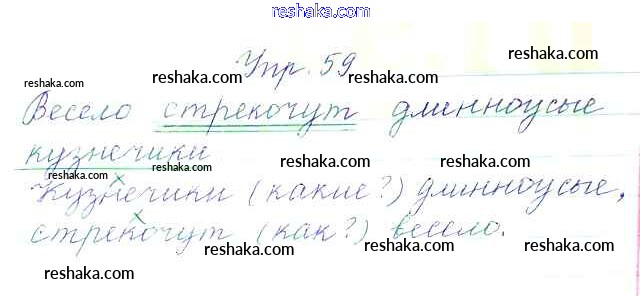 reshaka.com
Упр. 59
reshaka.com
reshaka.com
reshaka.com
Весело стрекочут длинноусые
reshaka.com reshaka.com reshaka.com
кузнечики
reshaka.com reshaka.com
Кузнечики (какие?) длинноусые,
reshaka.com reshaka.com reshaka.com
стрекочут (как?) весело.
reshaka.com reshaka.com reshaka.com
reshaka.com